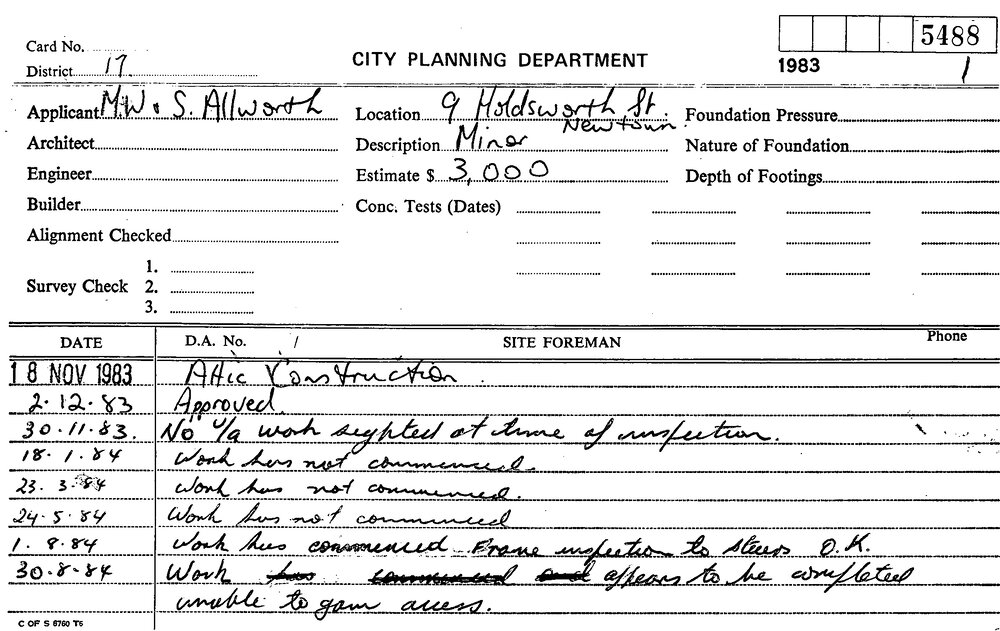 5488
Card No.
CITY PLANNING DEPARTMENT
1983 1
District 17
Applicant M.W & S. Allworth Location 9 Holdsworth St. Newtown. Foundation Pressure
Architect Description Minor Nature of Foundation
Engineer Estimate $ 3,000 Depth of Footings
Builder Conc. Tests (Dates)
Alignment Checked
1.
Survey Check 2.
3.
DATE D.A. No. / SITE FOREMAN Phone
18 NOV 1983 Attic Construction.
2.12.83 Approved.
30.11.83. No u/a work sighted at time of inspection.
18.1.84 Work has not commenced.
23.3.84 Work has not commenced.
24.5.84 Work has not commenced
1.8.84 Work has commenced Frame inspection to O.K.
30.8.84 Work has commenced and appears to be completed
unable to gain access.
C OF S 6760 T6